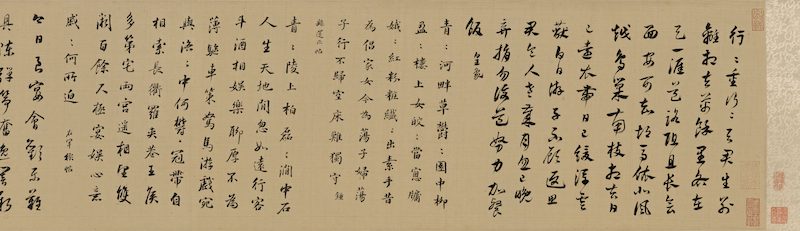 行〻重行〻与君生别
離相去萬餘里各在
天一涯道路阻且長會
面安可知胡馬依北風
越鳥巢南枝相去日
已遠衣帶日已緩浮雲
蔽白日遊子不顧返思
君令人老歲月忽已晚
棄捐勿復道努力加餐
飯 皇象
青〻河畔草鬱〻園中柳
盈〻樓上女皎〻當窗牖
娥〻紅粉粧纖〻出素手昔
為倡家女今為蕩子婦蕩
子行不歸空床難獨守 鍾
繇還示帖
青〻陵上柏磊〻澗中石
人生天地間忽如遠行客
斗酒相娛樂聊厚不為
薄驅車策駑馬游戲宛
與洛〻中何鬱〻冠帶自
相索長衢羅夾巷王侯
多第宅兩宮遙相望雙
闕百餘尺極宴娛心意
戚〻何所迫 右軍
今日良宴會歡樂難
具陳彈箏奮逸響新